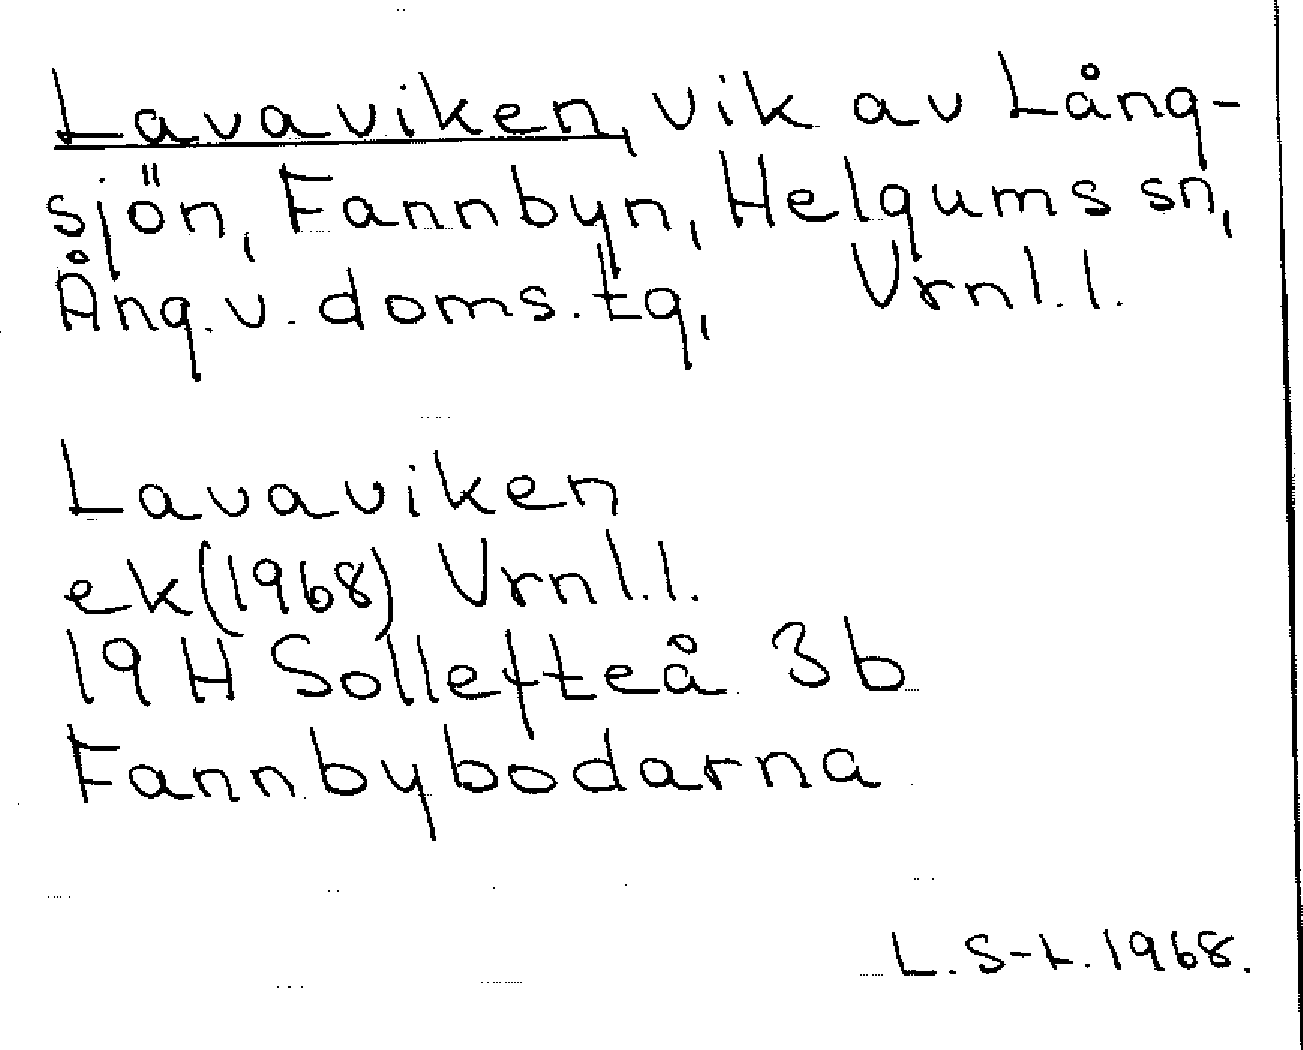 Lavaviken, vik av Lång-
sjön, Fannbyn, Helgums sn,
Ång. v. doms. tg, Vrnl. l.
Lavaviken
ek (1968) Vrnl. l.
19 H Sollefteå 3b
Fannbybodarna
L. S-L. 1968.